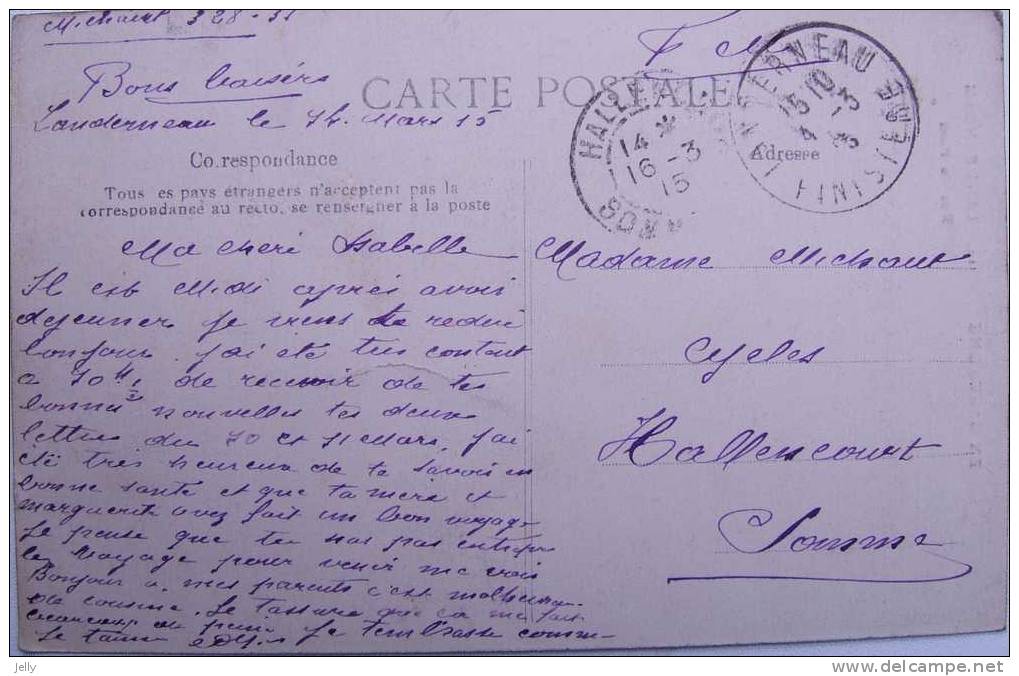 Michaut 328-33
F M
Bons baisers
CARTE POSTALE
Landerneau le 14 Mars 15
HALLEN
14 *
16 -3
15
SOMME
LANDERNEAU
15 10
14 -3
15
FINISTERE
Correspondance
Adresse
Tous es pays étrangers n'acceptent pas la
correspondance au recto, se renseigner à la poste
Ma cheri Isabelle
Il est Midi après avoir
dejeunner je viens te redire
bonjour. j'ai été tres contant
a 10 H ½ de recevoir de tes
bonnes nouvelles tes deux
lettres du 10 et 11 Mars, j'ai
été très heureux de te savoir en
bonne santé et que ta mère et
marguerite avez fait un bon voyage
Je pense que tu nas pas entrepris
le voyage pour venir me voir
Bonjour a mes parents c'est malheureux
de cousine. Je tassure que ca me fait
beaucoup de peine Je tembrasse comme
Je taime
Madame Michaut
Cycles
Hallencourt
Somme
Jelly
www.delcampe.net